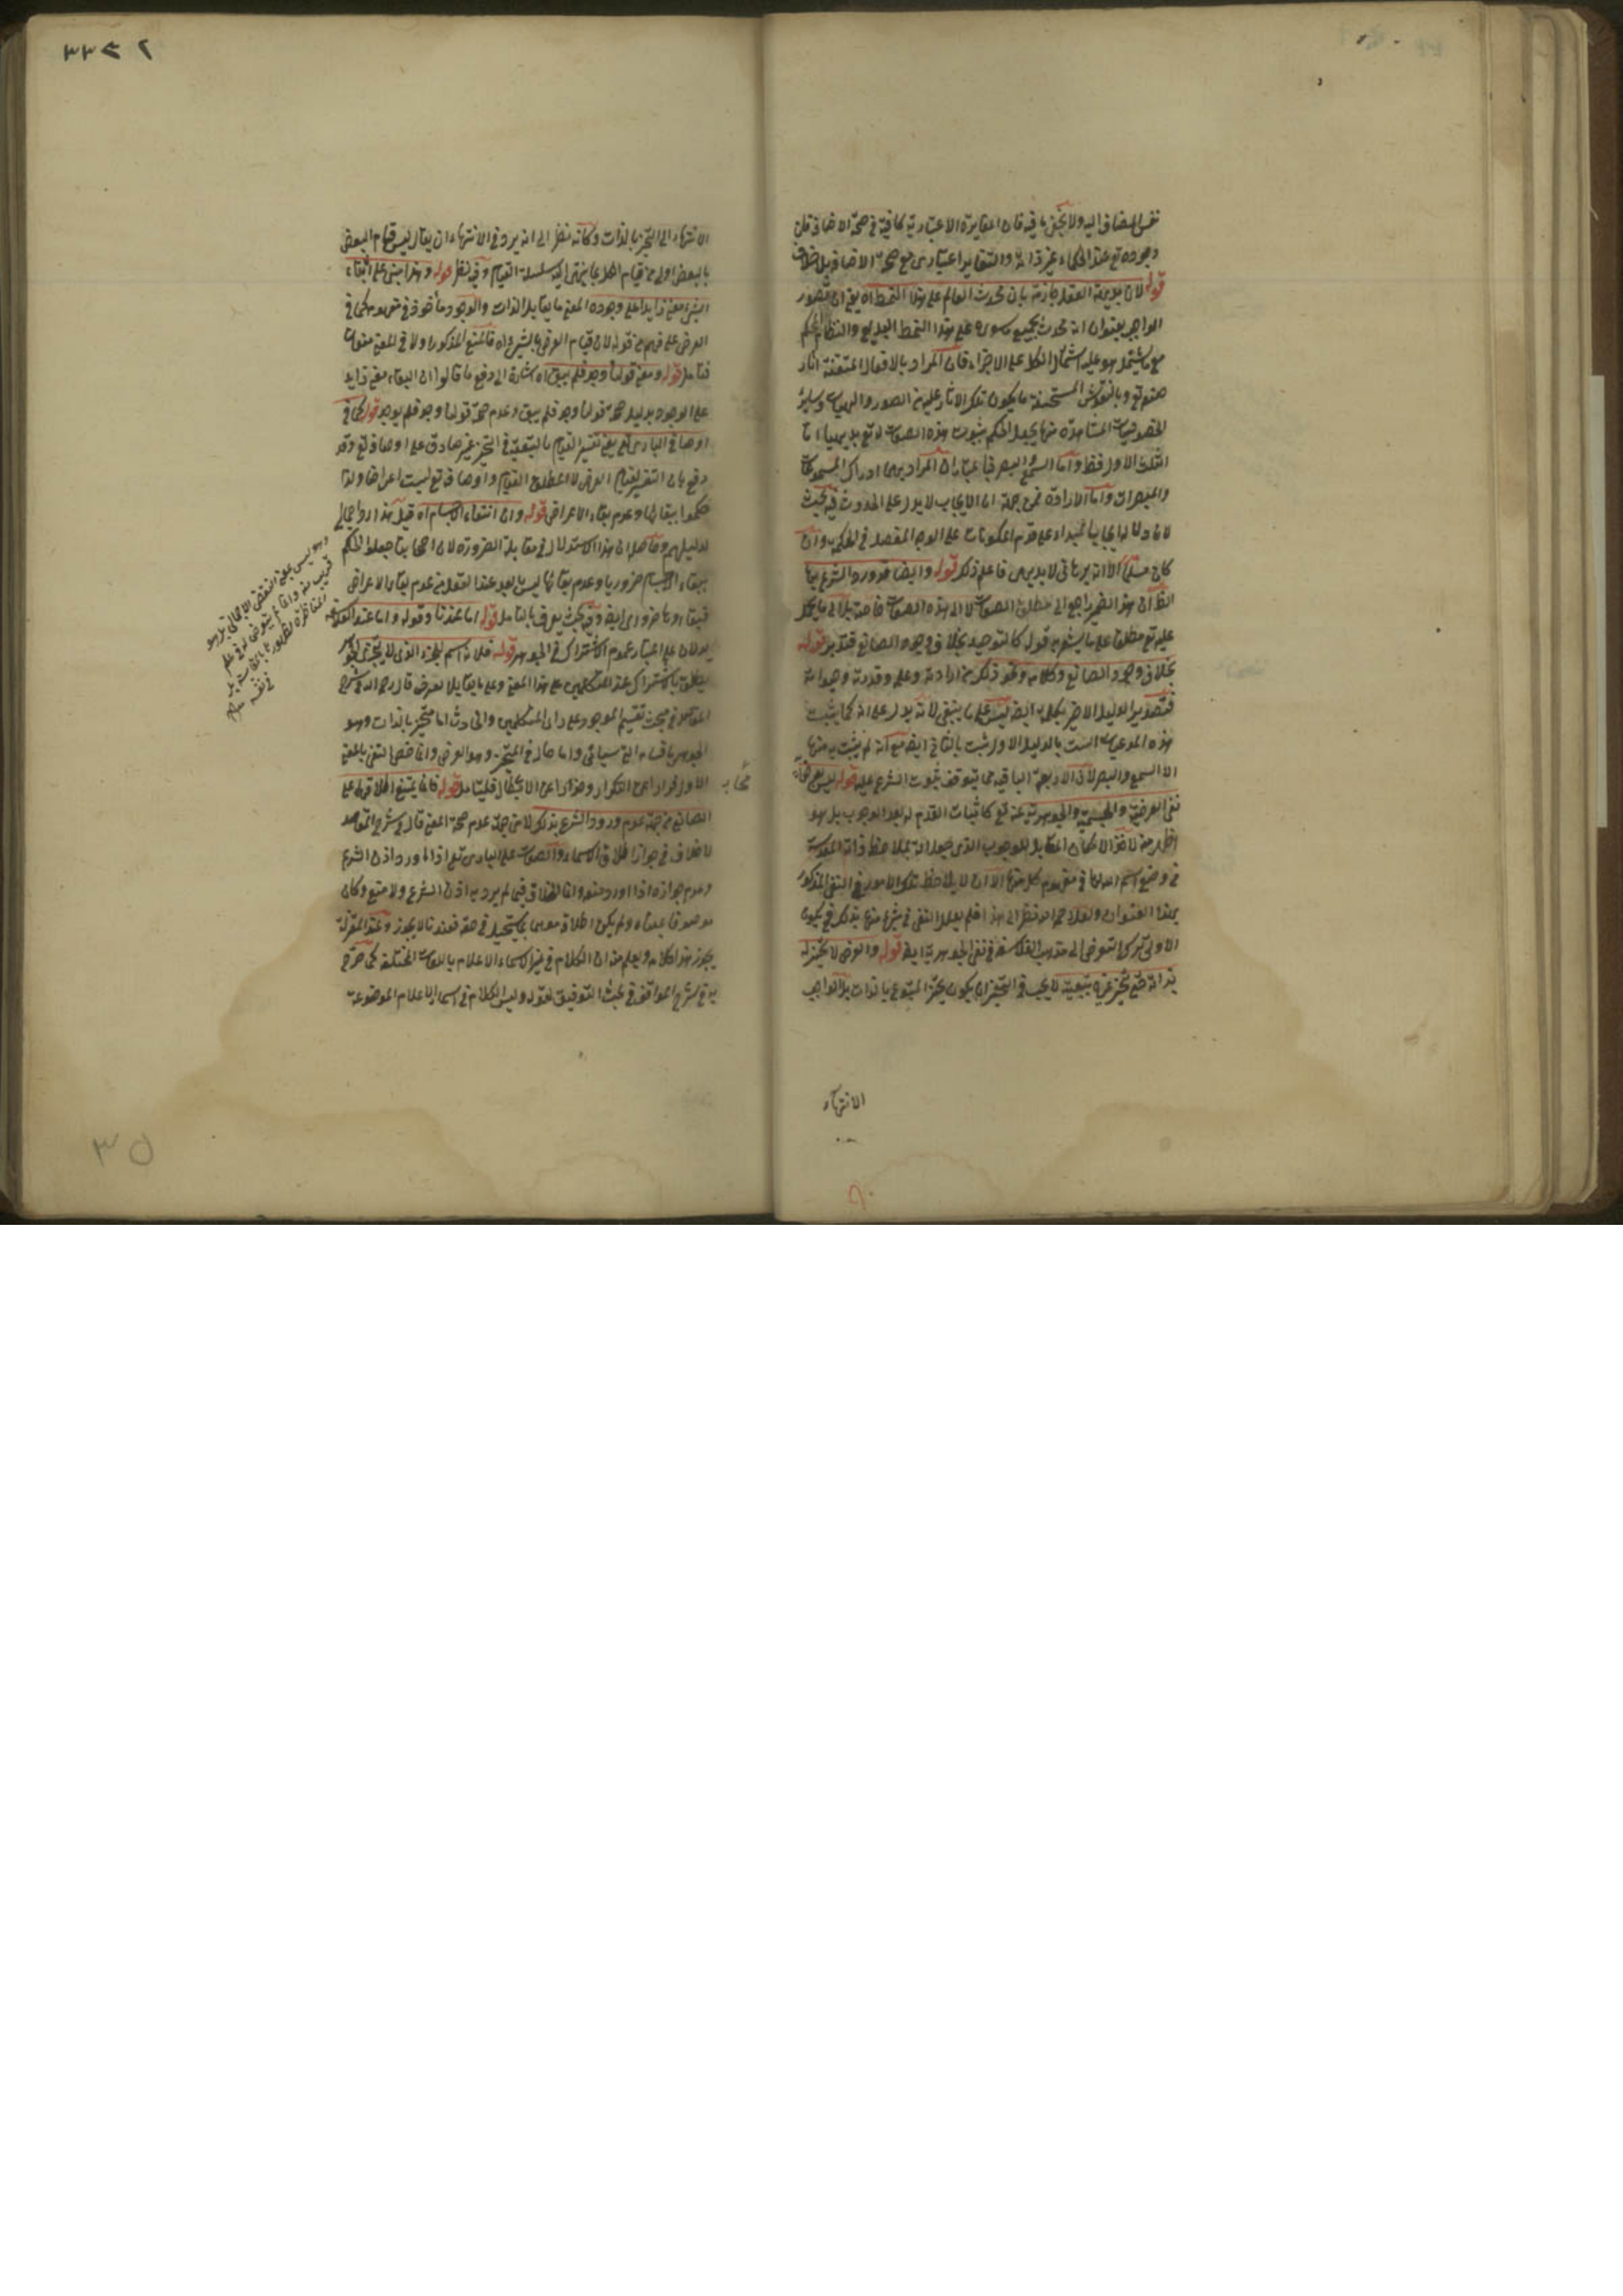 نفس المضاف اليه ولا يخفى ما فيه فان المغايرة الاعتبارية كافية في صحة الاضافة فان
وجوده تع عند الحكماء عين ذاته والتغاير اعتبارى مع صحة الاضافة بلا خلاف
قوله لان بديهة العقل جازمة بان محدث العالم على هذا النمط اه يعنى ان تصور
الواجب بعنوان انه محدث بجميع ما سواه على هذا النمط البديع والنظام المحكم
مع ما يشتمل هو عليه اشتمال الكل على الاجزاء فان المراد بالافعال المتقنة اثار
صنعه تع وبالنقوش المستحسنة ما يكون تلك الاثار عليه من الصور والهيات وسائر
الخصوصيات المشاهدة منها يجعل الحكم بثبوت هذه الصفات له تع بديهيا اما
الثلث الاول فقط واما السمع والبصر فباعتبار ان المراد بهما ادراك المسموعات
والمبصرات واما الارادة فمن جهة ان الايجاب لا يدل على الحدوث فيه بحيث
لان دلالة ايجاب المبداء على قدم المكونات على الوجه المفصل في الحكمة وان
كان مسلما الا انه برهانى لا بديهى فاعلم ذلك قوله وايضا قد ورد الشرع بها
الظ ان هذا الضمير راجع الى مطلق الصفات لا الى هذه الصفات خاصة بل الى ما يحمل
عليه تع مطلقا على ما يشعر به قوله كالتوحيد بخلاف وجود الصانع فتدبر قوله
بخلاف وجود الصانع وكلامه ونحو ذلك من ارادته وعلمه وقدرته وحيوته
فتصدير الدليل الاخير بكلمة ايضا ليس على ما ينبغى لانه يدل على انه كما يثبت
هذه المدعيات الست بالدليل الاول يثبت بالثانى ايضا مع انه لم يثبت به منها
الا السمع والبصر لان الاربعة الباقية مما يتوقف ثبوت الشرع عليه قوله ليس بعرض اه
نفى العرضية والجسمية والجوهرية عنه تع كاثبات القدم له بعد الوجوب بل هو
اظهر منه لاخذ الامكان المقابل للوجوب الذى جعل اله بملاحظة ذاته المقدسة
في وضع اسم الله لها في مفهوم كل منها الا ان لا يلاحظ تلك الامور في النفى المذكور
بهذا العنوان ولعله رحمه الله نظر الى هذا فلم يعلل النفى في شئ منها بذلك فيكون
الاولى ترك التعرض الى مذهب الفلاسفة في نفى الجوهرية ايضا قوله والعرض لا تحيز له
بذاته حتى تحيز غيره بتبعيته لا يجب في التحيز ان يكون تحيز المتبوع بالذات بل الواجب
الانتهاء
الانتهاء الى التحيز بالذات وكانه نظر الى انه يرد في الانتهاء ان يقال ليس قيام البعض
بالبعض اولى من قيام الكل بما ينتهى اليه سلسلة القيام وفيه نظر قوله وهذا مبنى على ان بقاء
الشئ معنى زايد على وجوده المعنى ما يقابل الذات والوجود ماخوذ في مفهومه كما في
العرض على فهم من قوله لان قيام العرض بالشئ اه فالمنع المذكور اولا في المعنى
فتامل قوله ومعنى قولنا وجد فلم يبق اه اشارة الى دفع ما قالوا ان البقاء معنى زايد
على الوجود بدليل صحة قولنا وجد فلم يبق وعدم صحة قولنا وجد فلم يوجد قوله كما في
اوصاف البارى تع يعنى تفسير القيام بالتبعية في التحيز غير صادق على اوصافه تع وقد
دفع بان التفسير لقيام العرض لا لمطلق القيام واوصافه تع ليست اعراضا ولذا
حكموا ببقائها وعدم بقاء الاعراض قوله وان انتفاء الاجسام اه قيل هذا رد اجمالى
لدليلهم وحاصله ان هذا الاستدلال في مقابلة الضرورة لان اصحابنا جعلوا الحكم
ببقاء الاجسام ضروريا وعدم بقائها ليس بابعد عند العقل من عدم بقاء الاعراض
فبقاؤها ضرورى ايضا وفيه بحث يعرف بالتامل قوله اما عندنا وقوله واما عند الفلاسفة
يدلان على اعتبار عموم الاشتراك في الجوهر قوله فلانه اسم للجزء الذى لا يتجزى الجوهر
يطلق بالاشتراك عند المتكلمين على هذا المعنى وعلى ما يقابل العرض قال رحمه الله في شرح
المقاصد في مبحث تقسيم الموجود على راى المتكلمين والحادث اما متحيز بالذات وهو
الجوهر باقسامه التى سياتى واما حال في المتحيز وهو العرض وانما خص النفى بالمعنى
الاول فرارا عن التكرار وحذرا عن الابطال فليتامل قوله فانما يمتنع اطلاقهما على
الصانع من جهة عدم ورود الشرع بذلك لا من جهة عدم صحة المعنى قال في شرح المقاصد
لا خلاف في جواز اطلاق الاسماء والصفات على البارى تع اذا ورد اذن الشرع
وعدم جوازه اذا ورد منعه وانما الخلاف فيما لم يرد به اذن الشرع ولا منع وكان
موصوفا بمعناه ولم يكن اطلاقه موهما بما يستحيل في حقه فعندنا لا يجوز وعند المعتزلة
يجوز هذا كلامه ويعلم منه ان الكلام في غير اسماء الاعلام باللغات المختلفة كما صرح
به في شرح المواقف في بحث التوقيف لقوله وليس الكلام في اسمائه الاعلام الموضوعة
وهو ليس بمعنى النقض الاجمالى بل هو
قريب منه وانما
المناظرة
٣٣٧٢
٣٥